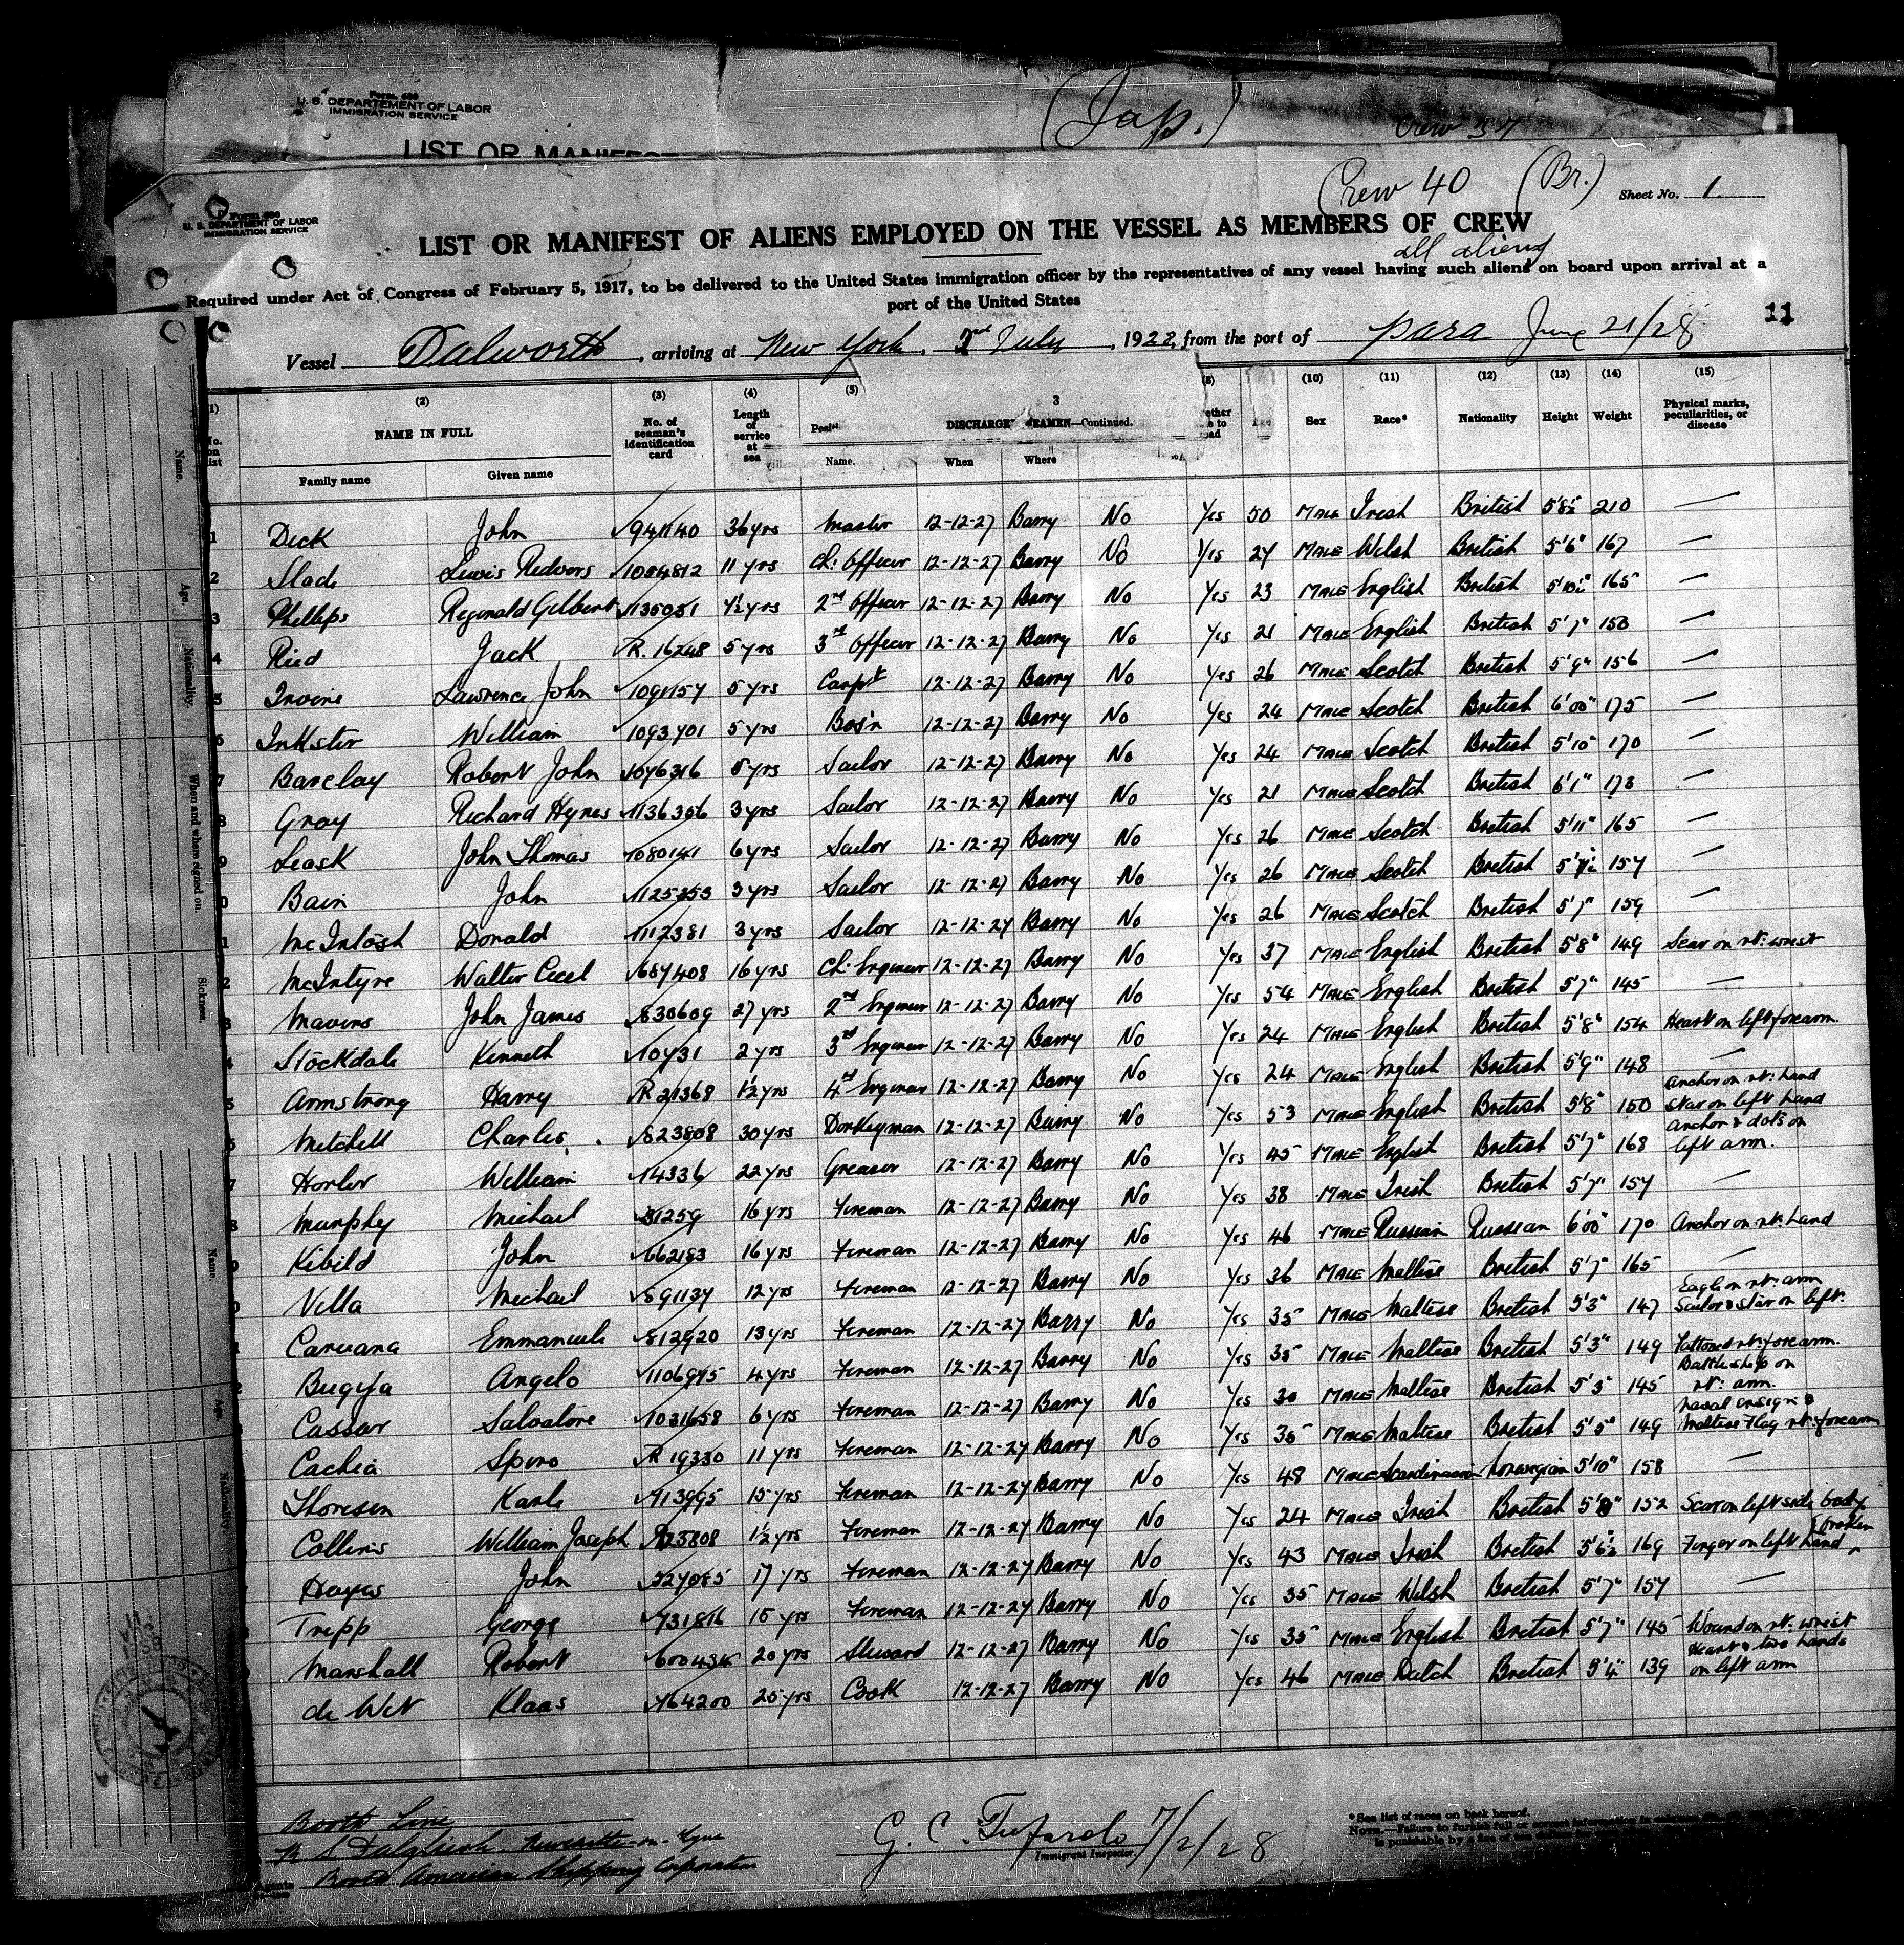 Form 680
U. S. DEPARTEMENT OF LABOR
IMMIGRATION SERVICE
LIST OR MANIFEST
(Jap.)
Crew 37
Crew 40 (Br.)
Sheet No. 1
Form 680
U. S. DEPARTMENT OF LABOR
IMMIGRATION SERVICE
LIST OR MANIFEST OF ALIENS EMPLOYED ON THE VESSEL AS MEMBERS OF CREW
all aliens
Required under Act of Congress of February 5, 1917, to be delivered to the United States immigration officer by the representatives of any vessel having such aliens on board upon arrival at a
port of the United States
11
Vessel Dalworth, arriving at New York, 2nd July, 1928, from the port of Para June 21/28
(2) (3) (4) (5) (8) (10) (11) (12) (13) (14) (15)
NAME IN FULL
Family name Given name
No. of seaman's identification card
Length of service at sea
3
DISCHARGED SEAMEN—Continued.
Name. When Where
Age Sex Race* Nationality Height Weight Physical marks, peculiarities, or disease
1 Dick John 941140 36 yrs Master 12-12-27 Barry No Yes 50 Male Irish British 5'8½ 210 —
2 Slade Lewis Redvers 1004812 11 yrs Ch. Officer 12-12-27 Barry No Yes 27 Male Welsh British 5'6" 167 —
3 Phillips Reginald Gilbert 1135051 4½ yrs 2nd Officer 12-12-27 Barry No Yes 23 Male English British 5'10½" 165 —
4 Ried Jack R. 16248 5 yrs 3rd Officer 12-12-27 Barry No Yes 21 Male English British 5'7" 153 —
5 Irvine Lawrence John 1091157 5 yrs Carpt 12-12-27 Barry No Yes 26 Male Scotch British 5'9" 156 —
6 Inkster William 1093701 5 yrs Bos'n 12-12-27 Barry No Yes 24 Male Scotch British 6'00" 175 —
7 Barclay Robert John 1076316 5 yrs Sailor 12-12-27 Barry No Yes 24 Male Scotch British 5'10" 170 —
8 Gray Richard Hynes 1136306 3 yrs Sailor 12-12-27 Barry No Yes 21 Male Scotch British 6'1" 173 —
9 Leask John Thomas 1080141 6 yrs Sailor 12-12-27 Barry No Yes 26 Male Scotch British 5'11" 165 —
0 Bain John 1125253 3 yrs Sailor 12-12-27 Barry No Yes 26 Male Scotch British 5'7½ 157 —
1 McIntosh Donald 1112381 3 yrs Sailor 12-12-27 Barry No Yes 26 Male Scotch British 5'7" 159 —
2 McIntyre Walter Cecil 687408 16 yrs Ch. Engineer 12-12-27 Barry No Yes 37 Male English British 5'8" 149 Scar on rt. wrist
3 Mavins John James 830609 27 yrs 2nd Engineer 12-12-27 Barry No Yes 54 Male English British 5'7" 145 —
4 Stockdale Kenneth 10731 2 yrs 3rd Engineer 12-12-27 Barry No Yes 24 Male English British 5'8" 154 Heart on left forearm
5 Armstrong Harry R 21368 1½ yrs 4th Engineer 12-12-27 Barry No Yes 24 Male English British 5'9" 148 —
6 Mitchell Charles 823808 30 yrs Donkeyman 12-12-27 Barry No Yes 53 Male English British 5'8" 150 Anchor on rt. hand Star on left hand
7 Horler William 14336 22 yrs Greaser 12-12-27 Barry No Yes 45 Male English British 5'7" 168 anchor & dots on left arm.
8 Murphy Michael 31259 16 yrs Fireman 12-12-27 Barry No Yes 38 Male Irish British 5'7" 157 —
9 Kibild John 662183 16 yrs Fireman 12-12-27 Barry No Yes 46 Male Russian Russian 6'00" 170 Anchor on rt. hand
0 Vella Michail 891137 12 yrs Fireman 12-12-27 Barry No Yes 36 Male Maltese British 5'7" 165 —
1 Caruana Emmanuele 812920 13 yrs Fireman 12-12-27 Barry No Yes 35 Male Maltese British 5'3" 147 Eagle on rt. arm Sailor & star on left.
2 Bugeja Angelo 1106975 4 yrs Fireman 12-12-27 Barry No Yes 35 Male Maltese British 5'3" 149 Tattooed rt. forearm.
3 Cassar Salvatore 1031658 6 yrs Fireman 12-12-27 Barry No Yes 30 Male Maltese British 5'5" 145 Battleship on rt. arm.
Cachia Spiro R 19330 11 yrs Fireman 12-12-27 Barry No Yes 35 Male Maltese British 5'5" 149 Naval ensign & Maltese Flag rt. forearm
Thoresen Karle 713995 15 yrs Fireman 12-12-27 Barry No Yes 48 Male Scandinavian Norwegian 5'10" 158 —
Collins William Joseph 23808 1½ yrs Fireman 12-12-27 Barry No Yes 24 Male Irish British 5'8" 152 Scar on left side body
Hayes John 727085 17 yrs Fireman 12-12-27 Barry No Yes 43 Male Irish British 5'6½ 169 Finger on left hand broken
Tripp George 731816 15 yrs Fireman 12-12-27 Barry No Yes 35 Male Welsh British 5'7" 157 —
Marshall Robert 600435 20 yrs Steward 12-12-27 Barry No Yes 35 Male English British 5'7" 145 Wound on rt. wrist
de Wit Klaas 764200 25 yrs Cook 12-12-27 Barry No Yes 46 Male Dutch British 5'4" 139 Heart & two hands on left arm
Booth Line
Dalgliesh, Newcastle-on-Tyne
Agents Booth American Shipping Corporation
G. C. Tufarolo 7/2/28
Immigrant Inspector.
*See list of races on back hereof.
NOTE.—Failure to furnish full or correct information
is punishable by a fine of ten
Name. Age. Nationality. When and where signed on. Sickness.
Name. Age. Nationality